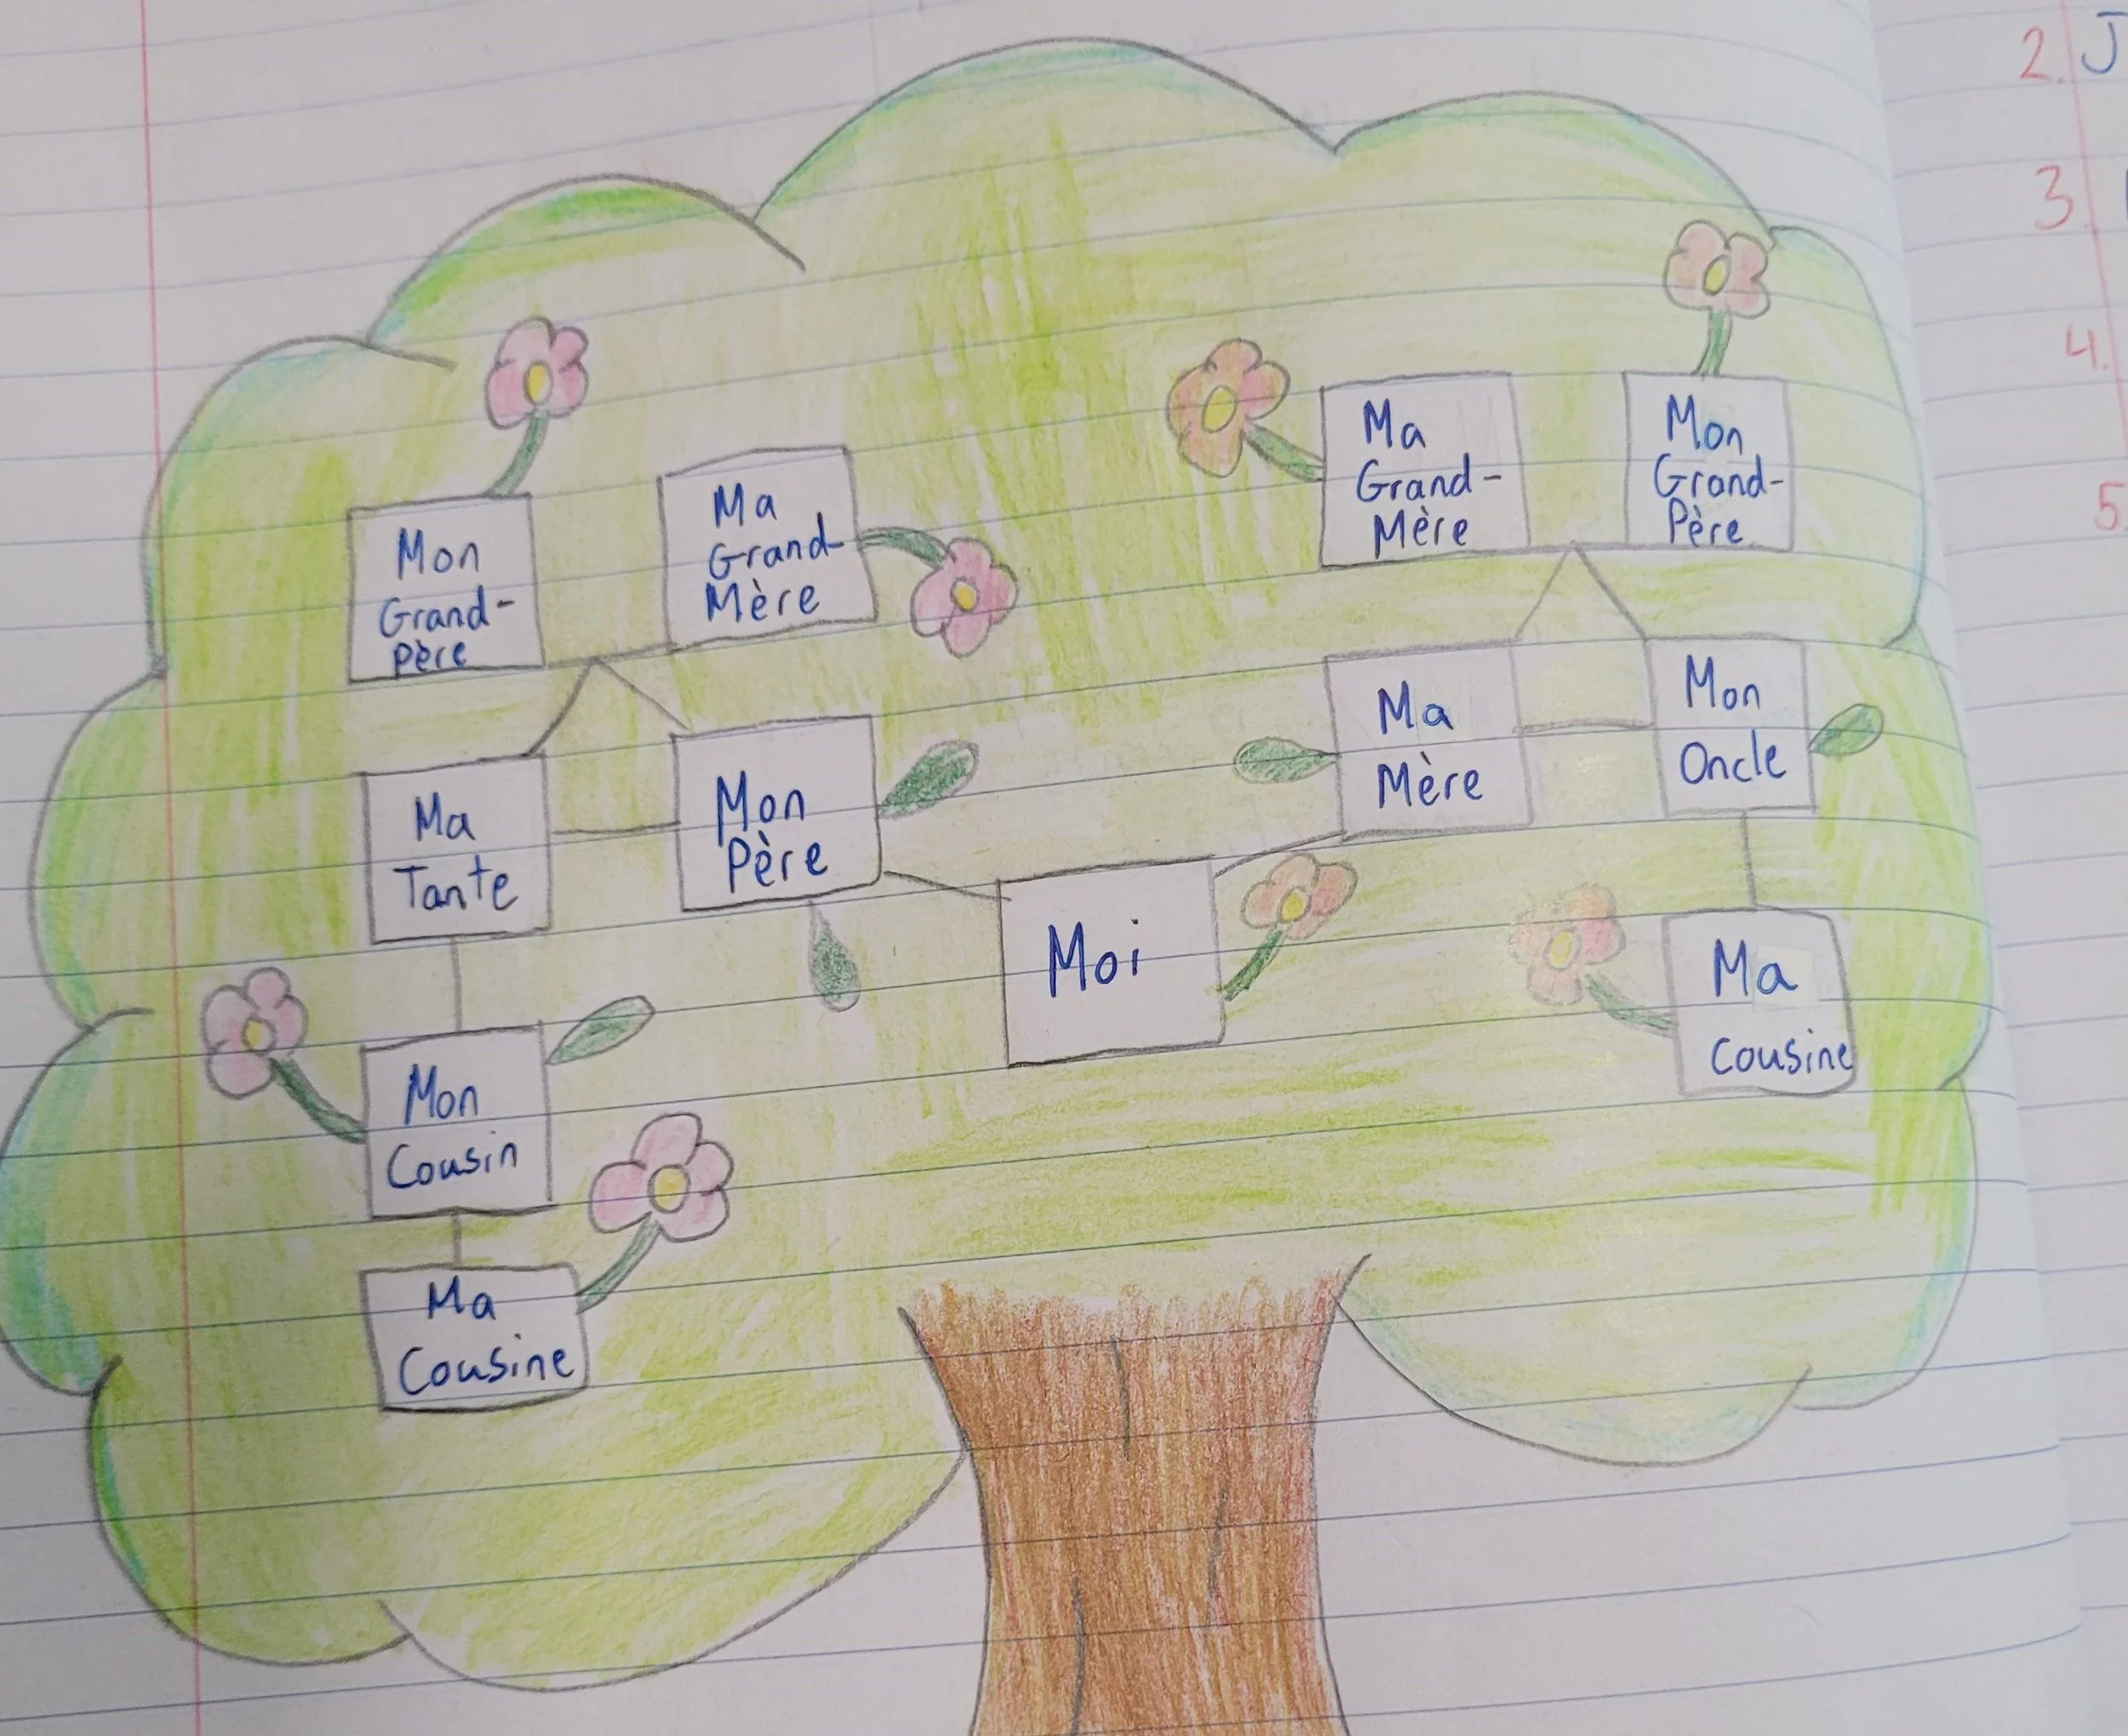 2. J
3.
4.
5
Mon
Grand-
Père
Ma
Grand-
Mère
Ma
Grand-
Mère
Mon
Grand-
Père
Ma
Tante
Mon
Père
Ma
Mère
Mon
Oncle
Moi
Mon
Cousin
Ma
Cousine
Ma
Cousine